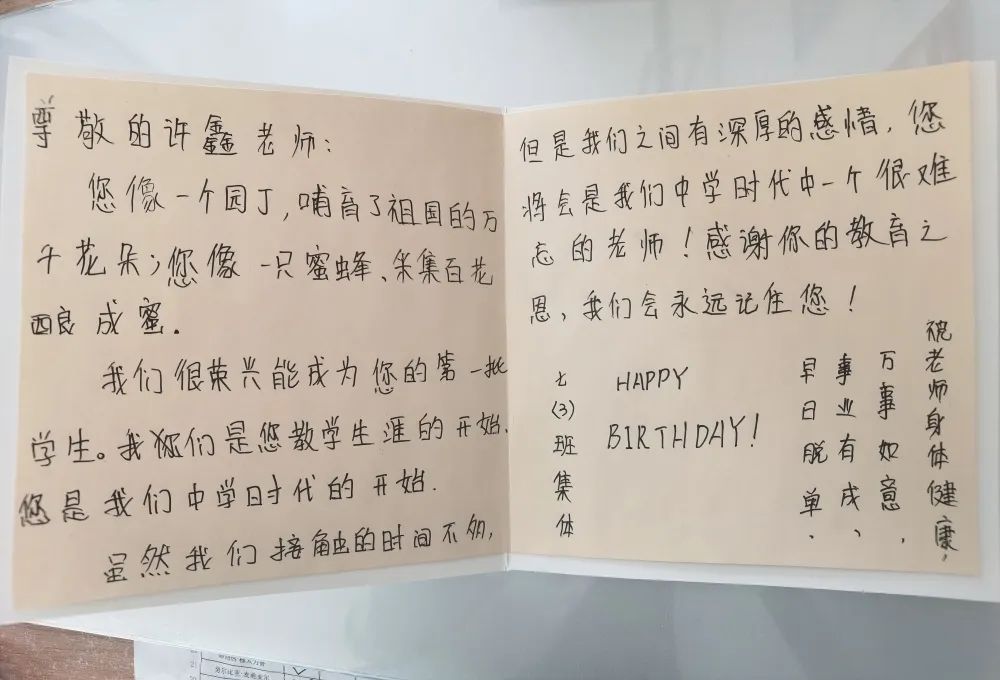 尊敬的许鑫老师：
您像一个园丁，哺育了祖国的万
千花朵；您像一只蜜蜂、采集百花
酿成蜜。
我们很荣兴能成为您的第一批
学生。我们是您教学生涯的开始、
您是我们中学时代的开始.
虽然我们接触的时间不多，
但是我们之间有深厚的感情，您
将会是我们中学时代中一个很难
忘的老师！感谢你的教育之
恩，我们会永远记住您！
祝老师身体健康，
万事如意，
事业有成、
早日脱单.
HAPPY
BIRTHDAY!
七(3)班集体